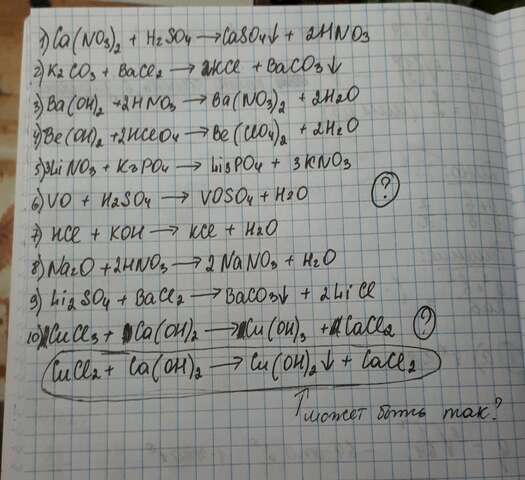 1) Ca(NO3)2 + H2SO4 → CaSO4↓ + 2HNO3
2) K2CO3 + BaCl2 → 2KCl + BaCO3↓
3) Ba(OH)2 + 2HNO3 → Ba(NO3)2 + 2H2O
4) Be(OH)2 + 2HClO4 → Be(ClO4)2 + 2H2O
5) 3LiNO3 + K3PO4 → Li3PO4 + 3KNO3
6) VO + H2SO4 → VOSO4 + H2O ?
7) HCl + KOH → KCl + H2O
8) Na2O + 2HNO3 → 2NaNO3 + H2O
9) Li2SO4 + BaCl2 → BaCO3↓ + 2LiCl
10) CuCl3 + Ca(OH)2 → Cu(OH)3 + CaCl2 ?
CuCl2 + Ca(OH)2 → Cu(OH)2↓ + CaCl2
↑ может быть так?